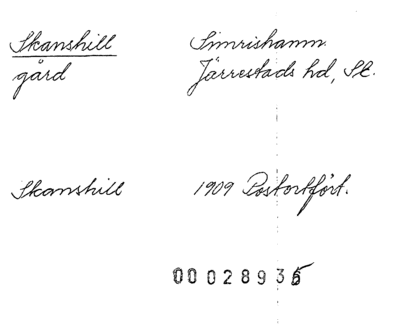 Skanshill Simrishamn
gård Järrestads hd, Sk.
Skanshill 1909 Postortfört.
00 028935